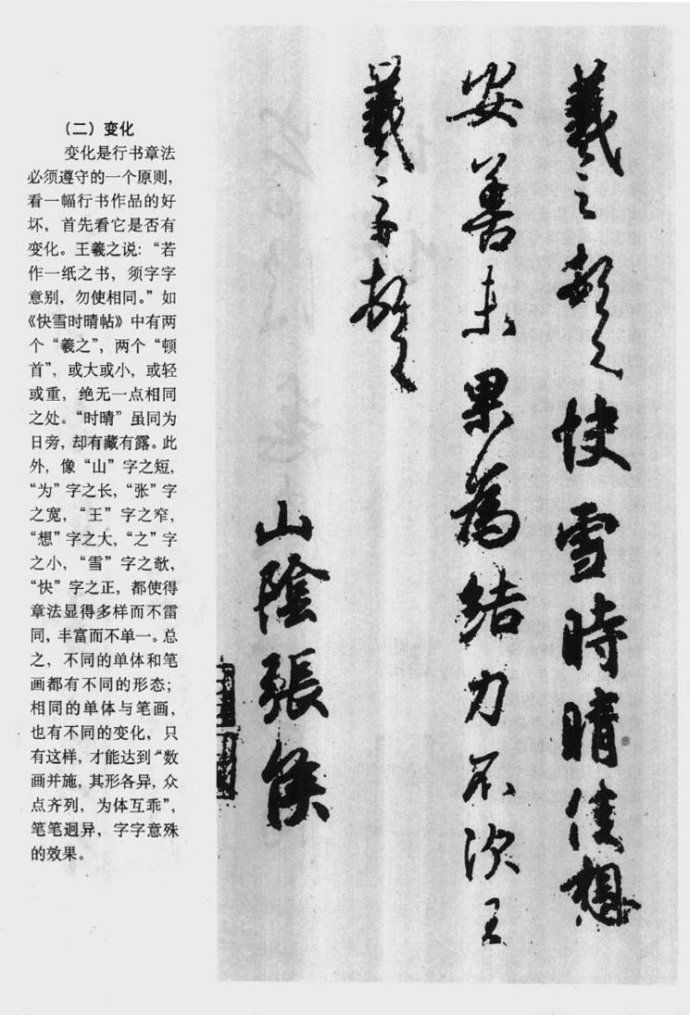 （二）变化
变化是行书章法
必须遵守的一个原则，
看一幅行书作品的好
坏，首先看它是否有
变化。王羲之说：“若
作一纸之书，须字字
意别，勿使相同。”如
《快雪时晴帖》中有两
个“羲之”，两个“顿
首”，或大或小，或轻
或重，绝无一点相同
之处。“时晴”虽同为
日旁，却有藏有露。此
外，像“山”字之短，
“为”字之长，“张”字
之宽，“王”字之窄，
“想”字之大，“之”字
之小，“雪”字之欹，
“快”字之正，都使得
章法显得多样而不雷
同，丰富而不单一。总
之，不同的单体和笔
画都有不同的形态；
相同的单体与笔画，
也有不同的变化，只
有这样，才能达到“数
画并施，其形各异，众
点齐列，为体互乖”，
笔笔迥异，字字意殊
的效果。
羲之顿首快雪時晴佳想
安善未果為結力不次王
羲之顿首
山陰張侯